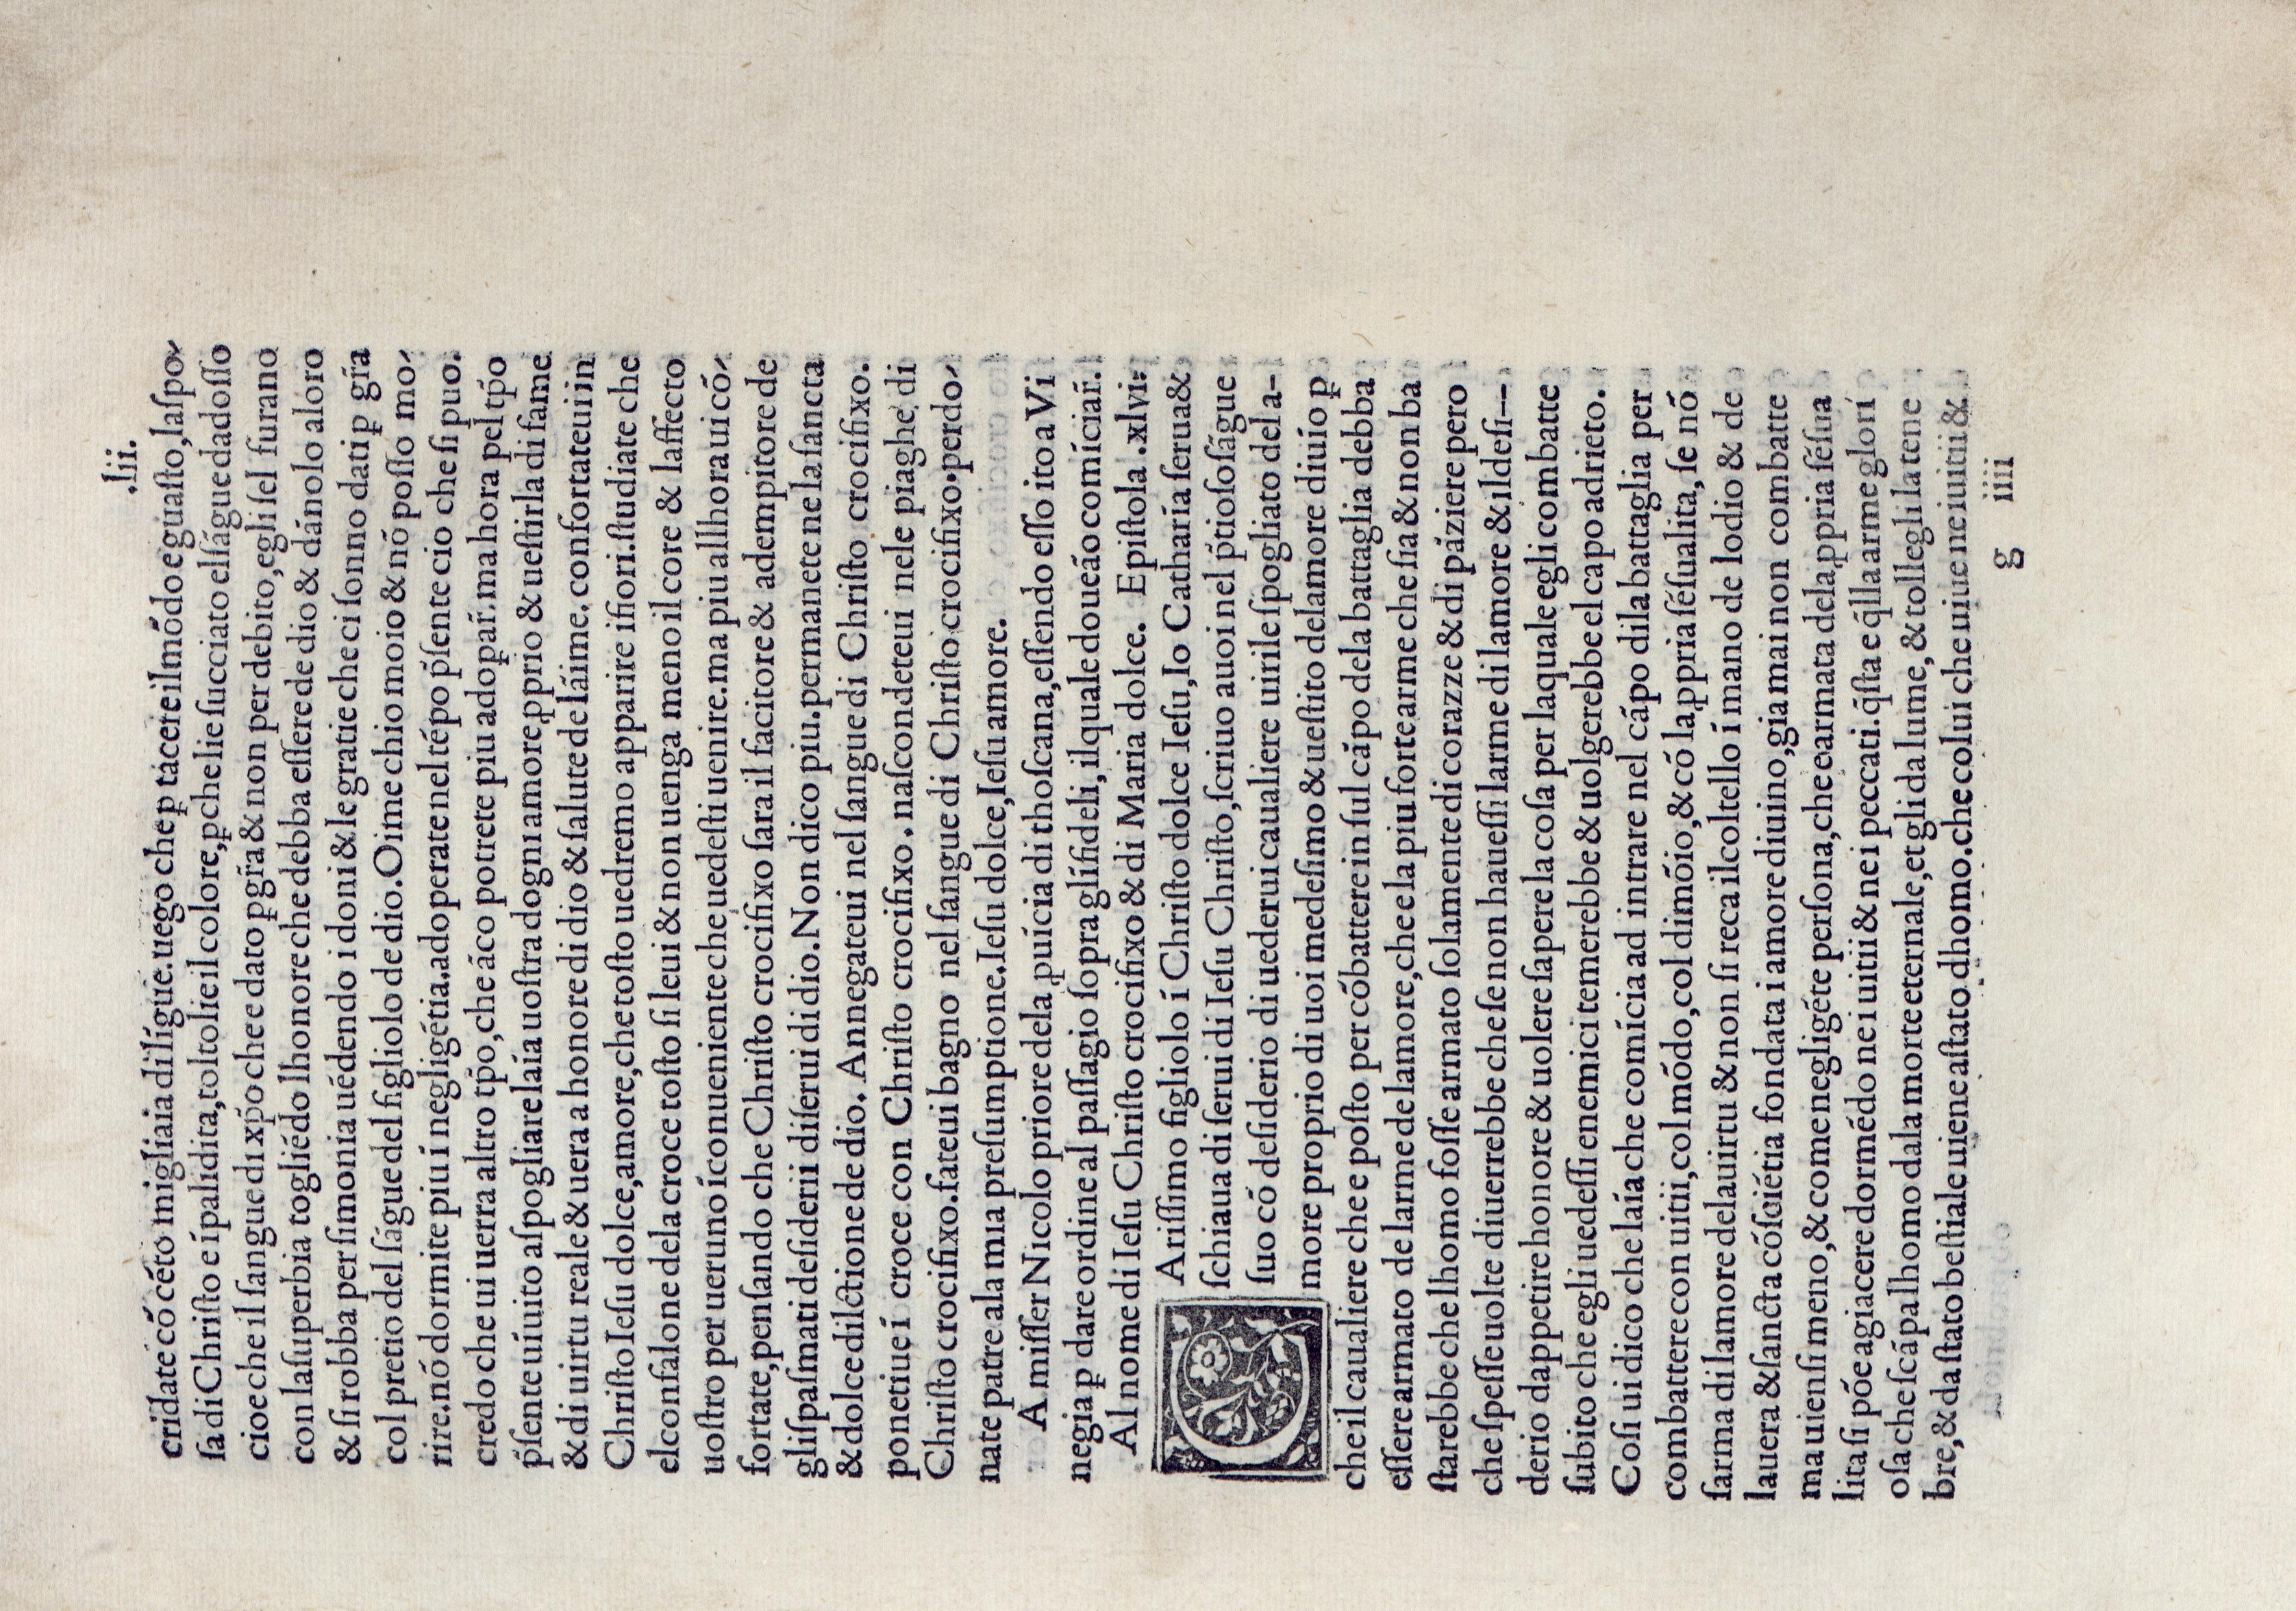 .lii.
cridate có céto migliaia di lígue. uego che ꝑ tacere il módo e guaſto, la ſpo-
ſa di Chriſto e ípalidita, toltolie il colore, ꝑche lie ſucciato el ſágue dadoſſo
cioe che il ſangue di xp̄o che e dato ꝑ gr̄a & non per debito, egli ſel furano
con la ſuperbia togliédo lhonore che debba eſſere de dio & dánolo a loro
& ſi robba per ſimonia uédendo i doni & le gratie che ci ſonno dati ꝑ gr̄a
col pretio del ſágue del figliolo de dio. Oime chio moio & nó poſſo mo-
rire. nó dormite piu í negligétia. adoperate nel tépo p̄ſente cio che ſi puo.
credo che ui uerra altro tp̄o, che áco potrete piu adopar̄. ma hora pel tp̄o
p̄ſente uíuito a ſpogliare laía uoſtra dogni amore ꝓprio & ueſtirla di fame
& di uirtu reale & uera a honore di dio & ſalute de láime. confortateui in
Chriſto Ieſu dolce, amore, che toſto uedremo apparire ifiori. ſtudiate che
el confalone dela croce toſto ſi leui & non uenga meno il core & laffecto
uoſtro per ueruno íconueniente che uedeſti uenire. ma piu allhora ui có-
fortate, penſando che Chriſto crocifixo ſara il facitore & adempitore de
gli ſpaſmati deſiderii di ſerui di dio. Non dico piu. permanete ne la ſancta
& dolce dilectione de dio. Annegateui nel ſangue di Chriſto crocifixo.
ponetiue í croce con Chriſto crocifixo. naſcondeteui nele piaghe di
Chriſto crocifixo. fateui bagno nel ſangue di Chriſto crocifixo. perdo-
nate patre ala mia preſumptione. Ieſu dolce, Ieſu amore.
A miſſer Nicolo priore dela ꝓuícia di thoſcana, eſſendo eſſo ito a Vi
negia ꝑ dare ordine al paſſagio ſopra glífideli, il quale doueáo comíciar̄.
Al nome di Ieſu Chriſto crocifixo & di Maria dolce. Epiſtola .xlvi.
C Ariſſimo figliolo í Chriſto dolce Ieſu, Io Catharía ſerua &
ſchiaua di ſerui di Ieſu Chriſto, ſcriuo auoi nel p̄tioſo ſágue
ſuo có deſiderio di uederui caualiere uirile ſpogliato del a-
more proprio di uoi medeſimo & ueſtito delamore diuío ꝑ
che il caualiere che e poſto per cóbattere in ſul cápo dela battaglia debba
eſſere armato de larme de lamore, che e la piu forte arme che ſia & non ba
ſtarebbe che lhomo foſſe armato ſolamente di corazze & di páziere pero
che ſpeſſe uolte diuerrebbe che ſe non haueſſi larme di lamore & il deſi-
derio dappetire honore & uolere ſapere la coſa per laquale egli combatte
ſubito che egli uedeſſi enemici temerebbe & uolgerebbe el capo adrieto.
Coſi ui dico che laía che comícia ad intrare nel cápo di la battaglia per
combattere con uitii, col módo, col dimóio, & có la ꝓpria ſéſualita, ſe nó
ſarma di lamore delauirtu & non ſi reca il coltello í mano de lodio & de
lauera & ſancta cóſciétia fondata i amore diuino, gia mai non combatte
ma uienſi meno, & come negligéte perſona, che e armata dela ꝓpria ſéſua
lita ſi póe a giacere dormédo ne i uitii & nei peccati. q̄ſta e q̄lla arme glorí
oſa che ſcápa lhomo dala morte eternale, et gli da lume, & tollegli la tene
bre, & da ſtato beſtiale uiene a ſtato dhomo. che colui che uiue ne i uitii &
g iiii